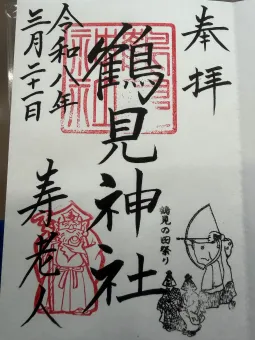 奉拝
鶴見の田祭り
鶴見神社
寿老人
令和八年
三月二十一日